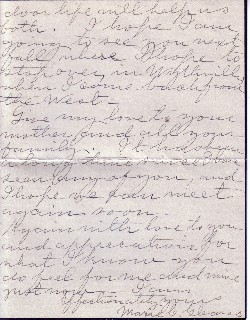 door life will help us
both. I hope I am
going to see you next
fall, where I hope to
stop over in Wytheville
when I come back from
the West.
Give my love to your
mother and all your
family. It has been
a long time since I have
seen any of you and
I hope we can meet
again soon.
Again with love to you
and appreciation for
what I know you
do feel for me and mine
just now I am
Affectionately yours